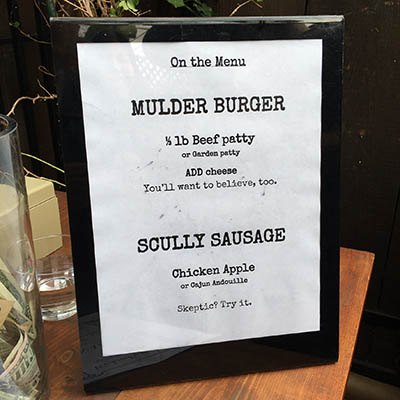 On the Menu
MULDER BURGER
½ lb Beef patty
or Garden patty
ADD cheese
You'll want to believe, too.
SCULLY SAUSAGE
Chicken Apple
or Cajun Andouille
Skeptic? Try it.